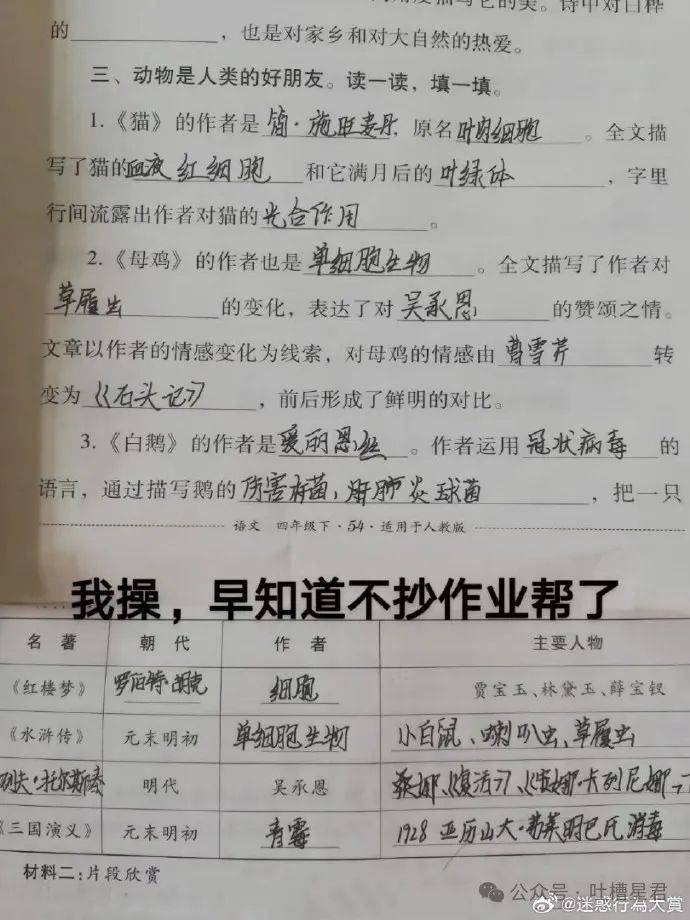 的____________，也是对家乡和对大自然的热爱。
三、动物是人类的好朋友。读一读，填一填。
1.《猫》的作者是 简·施旺麦尔 原名 叶肉细胞 。全文描
写了猫的 血液 红细胞 和它满月后的 叶绿体 ，字里
行间流露出作者对猫的 光合作用 。
2.《母鸡》的作者也是 单细胞生物 。全文描写了作者对
草履虫 的变化，表达了对 吴承恩 的赞颂之情。
文章以作者的情感变化为线索，对母鸡的情感由 曹雪芹 转
变为 《石头记》 ，前后形成了鲜明的对比。
3.《白鹅》的作者是 爱丽恩丝 。作者运用 冠状病毒 的
语言，通过描写鹅的 伤害杆菌，肝肺炎球菌 ，把一只
语文 四年级下·54·适用于人教版
我操，早知道不抄作业帮了
名著 朝代 作者 主要人物
《红楼梦》 罗伯特·胡克 细胞 贾宝玉、林黛玉、薛宝钗
《水浒传》 元末明初 单细胞生物 小白鼠、喇叭虫、草履虫
列夫·托尔斯泰 明代 吴承恩 桑娜、《复活》、《安娜·卡列尼娜》
《三国演义》 元末明初 青霉 1928 亚历山大·弗莱明巴氏消毒
材料二：片段欣赏
公众号·吐槽星君
@迷惑行為大賞